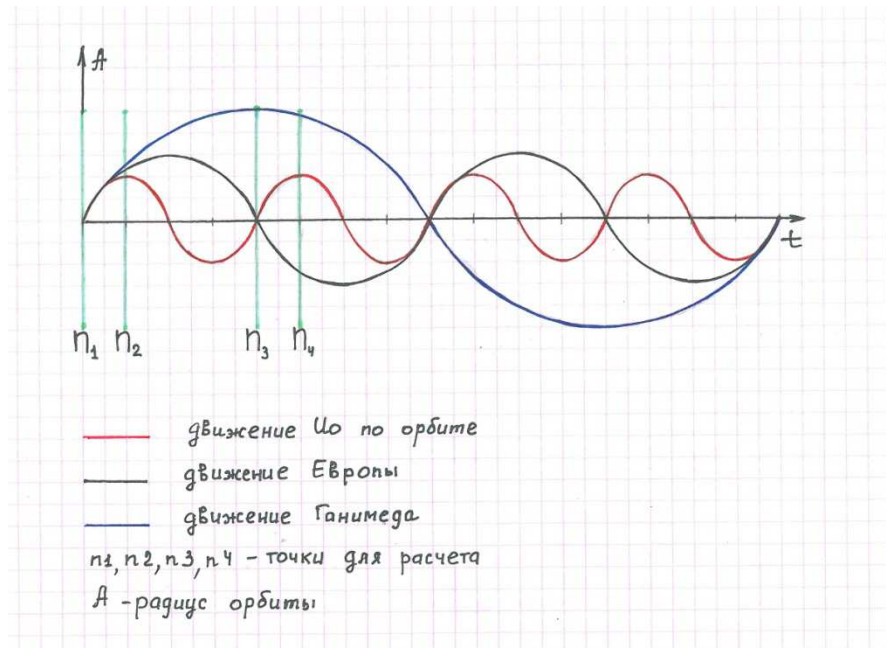 A
t
n₁ n₂ n₃ n₄
движение Ио по орбите
движение Европы
движение Ганимеда
n1, n2, n3, n4 - точки для расчета
A - радиус орбиты